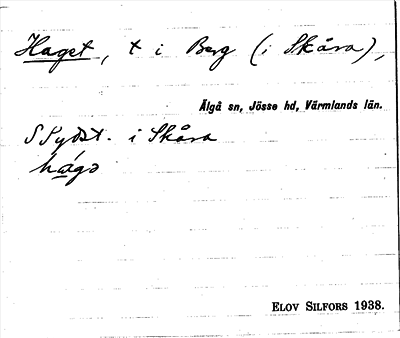 Haget, t i Berg (i Skåra),
Älgå sn, Jösse hd, Värmlands län.
S Sydöst. i Skåra
hágə
ELOV SILFORS 1938.